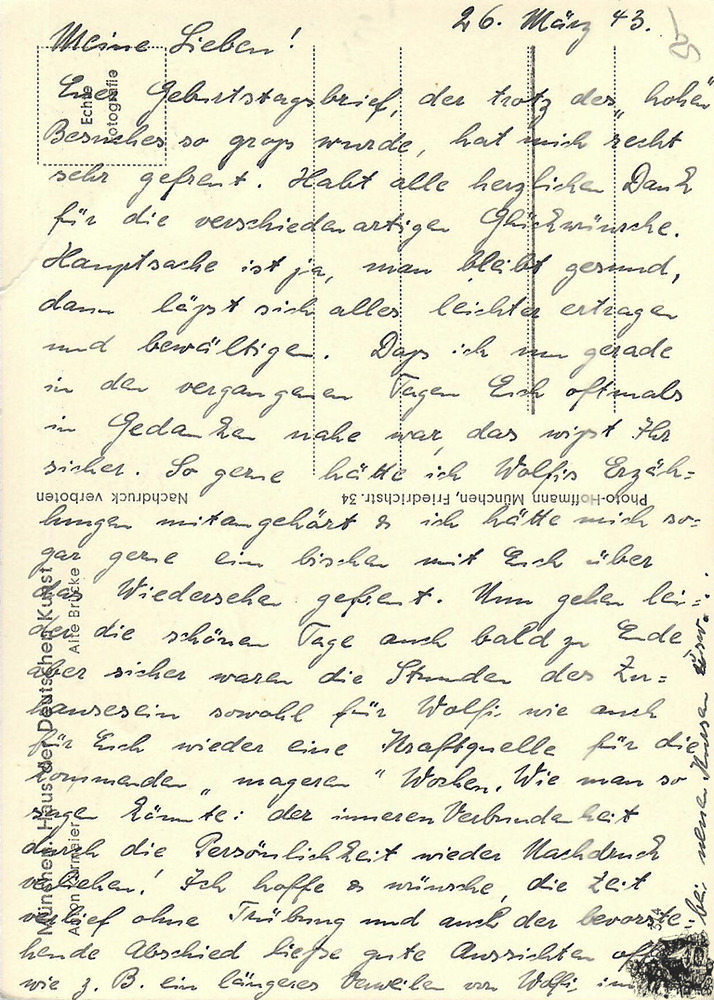 26. März 43.
Meine Lieben!
Euer Geburtstagsbrief, der trotz des „hohen
Besuches so gross wurde, hat mich recht
sehr gefreut. Habt alle herzlichen Dank
für die verschiedenartigen Glückwünsche.
Hauptsache ist ja, man bleibt gesund,
dann lässt sich alles leichter ertragen
und bewältigen. Dass ich nun gerade
in den vergangenen Tagen Euch oftmals
in Gedanken nahe war, das wisst Ihr
sicher. So gerne hätte ich Wolfis Erzäh=
lungen mitangehört & ich hätte mich so=
gar gerne ein bischen mit Euch über
das Wiedersehen gefreut. Nun gehen lei=
der die schönen Tage auch bald zu Ende
aber sicher waren die Stunden des Zu=
hauseseins sowohl für Wolfi wie auch
für Euch wieder eine Kraftquelle für die
kommenden „mageren" Wochen. Wie man so
sagen könnte: der inneren Verbundenheit
durch die Persönlichkeit wieder Nachdruck
verliehen! Ich hoffe & wünsche, die Zeit
verlief ohne Trübung und auch der bevorste=
hende Abschied liesse gute Aussichten offen
wie z. B. ein längeres Verweilen von Wolfi im
bei neuen Kursen usw..
Echte
Fotografie
Photo-Hoffmann München, Friedrichstr. 34
Nachdruck verboten
München. Haus der Deutschen Kunst
Alte Brücke